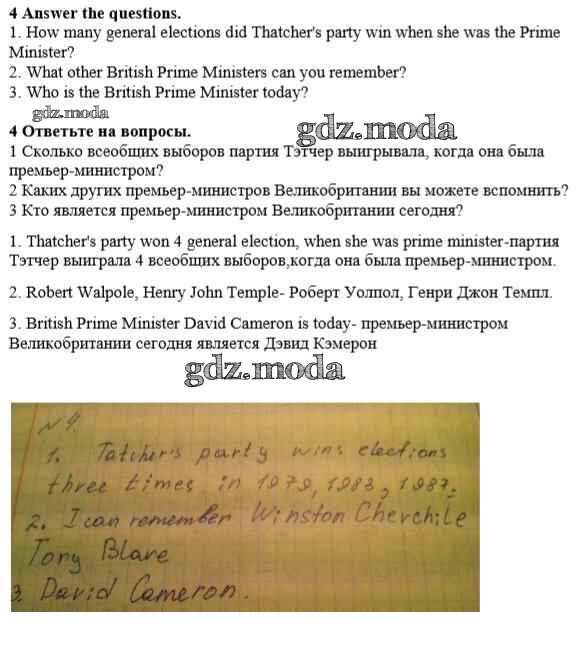 4 Answer the questions.
1. How many general elections did Thatcher's party win when she was the Prime
Minister?
2. What other British Prime Ministers can you remember?
3. Who is the British Prime Minister today?
gdz.moda
4 Ответьте на вопросы.
gdz.moda
1 Сколько всеобщих выборов партия Тэтчер выигрывала, когда она была
премьер-министром?
2 Каких других премьер-министров Великобритании вы можете вспомнить?
3 Кто является премьер-министром Великобритании сегодня?
1. Thatcher's party won 4 general election, when she was prime minister-партия
Тэтчер выиграла 4 всеобщих выборов,когда она была премьер-министром.
2. Robert Walpole, Henry John Temple- Роберт Уолпол, Генри Джон Темпл.
3. British Prime Minister David Cameron is today- премьер-министром
Великобритании сегодня является Дэвид Кэмерон
gdz.moda
№4.
1. Tatcher's party wins elections
three times in 1979, 1983, 1987.
2. I can remember Winston Cherchile
Tony Blare
3. David Cameron.